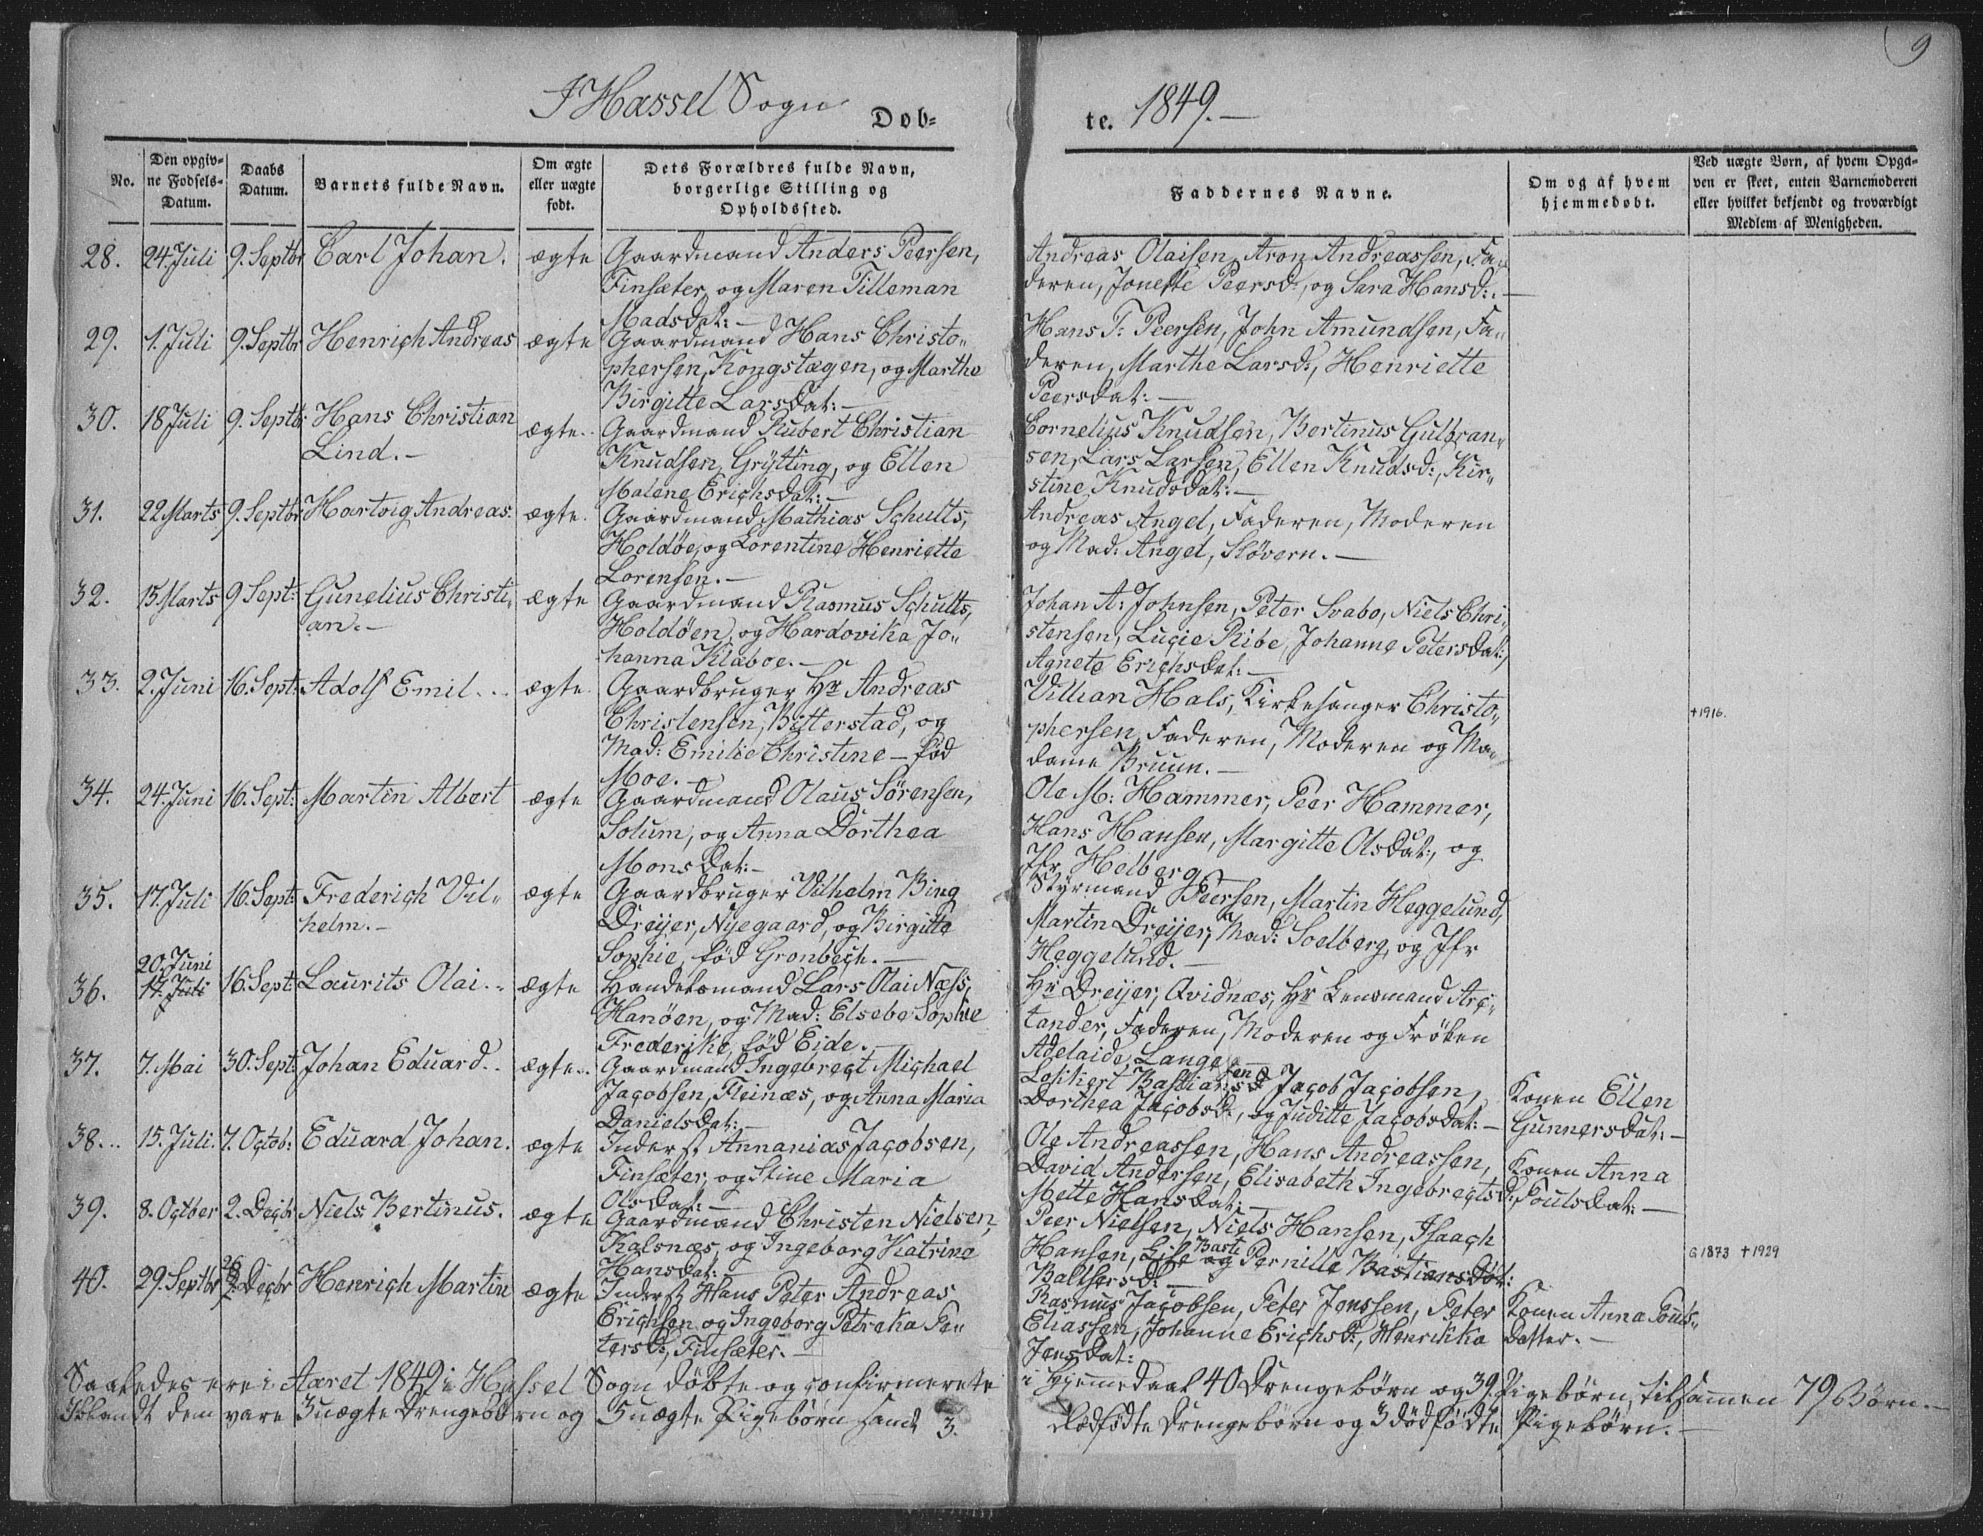 9
I Hassel Sogn
Døb=
te. 1849.—
No.
Den opgiv=
ne Fødsels=
Datum.
Daabs
Datum.
Barnets fulde Navn.
Om ægte
eller uægte
født.
Dets Forældres fulde Navn,
borgerlige Stilling og
Opholdssted.
Faddernes Navne.
Om og af hvem
hjemmedøbt.
Ved uægte Børn, af hvem Opga=
ven er skeet, enten Barnemoderen
eller hvilket bekjendt og troværdigt
Medlem af Menigheden.
28. 24. Juli 9. Septbr Carl Johan. ægte Gaardmand Anders Peersen,
Finsæter, og Maren Tilleman
Madsdat:—
Andreas Olaisen, Aron Andreassen, Fa=
deren, Jonette Peersd:, og Sara Hansd:.—
29. 1. Juli 9. Septbr Henrich Andreas ægte Gaardmand Hans Christo=
phersen, Kongstægen, og Marthe
Birgitte Larsdat:—
Hans T: Peersen, John Amundsen, Fa=
deren, Marthe Larsd:, Henriette
Peersdat:—
30. 18 Juli 9. Septbr Hans Christian
Lind.— ægte. Gaardmand Rubert Christian
Knudsen, Grytting, og Ellen
Malene Erichsdat:—
Cornelius Knudsen, Bertinus Gulbran=
sen, Lars Larsen, Ellen Knudsd:, Kir=
stine Knudsdat:—
31. 22 Marts 9. Septbr Hartvig Andreas. ægte. Gaardmand Mathias Schults,
Holdøe, og Lorentine Henriette
Lorensen.—
Andreas Angel, Faderen, Moderen
og Mad: Angel, Støvern.—
32. 15 Marts 9 Sept: Gunelius Christi=
an.— ægte Gaardmand Rasmus Schults,
Holdøen, og Hardovika Jo=
hanna Klæboe.—
Johan A: Johnsen, Peter Svabo, Niels Chri=
stensen, Lucie Ribe, Johanne Petersdat:,
Agnete Erichsdat:—
33. 2. Juni 16. Sept: Adolf Emil... ægte. Gaardbruger Hr Andreas
Christensen, Bitterstad, og
Mad: Emilie Christine — fød
Moe.—
Villian Hals, Kirkesanger Christo=
phersen, Faderen, Moderen og Ma=
dame Bruun.—
†1916.
34. 24. Juni 16. Sept: Martin Albert ægte Gaardmand Olaus Sørensen,
Solum, og Anna Dorthea
Monsdat:—
Ole M: Hammer, Peer Hammer,
Hans Hansen, Margitte Olsdat:, og
Jfr Helberg
35. 17. Juli 16. Sept: Frederich Vil=
helm.— ægte Gaardbruger Vilhelm Bing
Dreijer, Nyegaard, og Birgitte
Sophie, fød Grønbech.—
Styrmand Peersen, Martin Heggelund,
Martin Dreijer, Mad: Soelberg, og Jfr
Heggelund.—
20. Juni
36. 17. Juli 16. Sept: Laurits Olai.. ægte Handelsmand Lars Olai Næss,
Hanøen, og Mad: Elsebe Sophie
Frederike, fød Eide.—
Hr Dreijer, Qvidnæs, Hr Lensmand Arc=
tander, Faderen, Moderen og Frøken
Adelaide Lange
37. 7. Mai 30. Sept: Johan Eduard.. ægte.. Gaardmand Ingebregt Michael
Jacobsen, Fleinæs, og Anna Maria
Danielsdat:—
sen
Bastians Jacob Jacobsen,
Dorthea Jacobsd:, og Juditte Jacobsdat:—
Konen Ellen
Gunnersdat:—
38... 15. Juli. 7. Octob: Eduard Johan. ægte Inderst Annanias Jacobsen,
Finsæter, og Stine Maria
Olsdat:—
Ole Andreassen, Hans Andreassen,
David Andersen, Elisabeth Ingebregtsd:
Mette Hansdat:—
Konen Anna
Poulsdat:—
39. 8. Octber 2. Decbr Niels Bertinus. ægte Gaardmand Christen Nielsen,
Kalsnæs, og Ingeborg Katrina
Hansdat:—
Peer Nielsen, Niels Hansen, Isaach
Hansen, Lise og Pernille Bastiansdat:
Baltsersd:—
G 1873 †1929
26
40. 29. Septbr 2. Decbr Henrich Martin ægte Inderst Hans Peter Andreas
Erichsen og Ingeborg Petreka Pe=
tersd:, Finsæter.—
Rasmus Jacobsen, Peter Jenssen, Peter
Eliassen, Johanne Erichsd:, Henrikka
Jensdat:
Konen Anna Pouls=
datter.—
Saaledes ere i Aaret 1849 i Hassel Sogn døbte og confirmerete i Hjemmedaab 40 Drengebørn og 39 Pigebørn, tilsamen 79 Børn.—
Iblandt dem vare 3 uægte Drengebørn og 5 uægte Pigebørn samt 3. dødfødte Drengebørn og 3 dødfødte Pigebørn.—